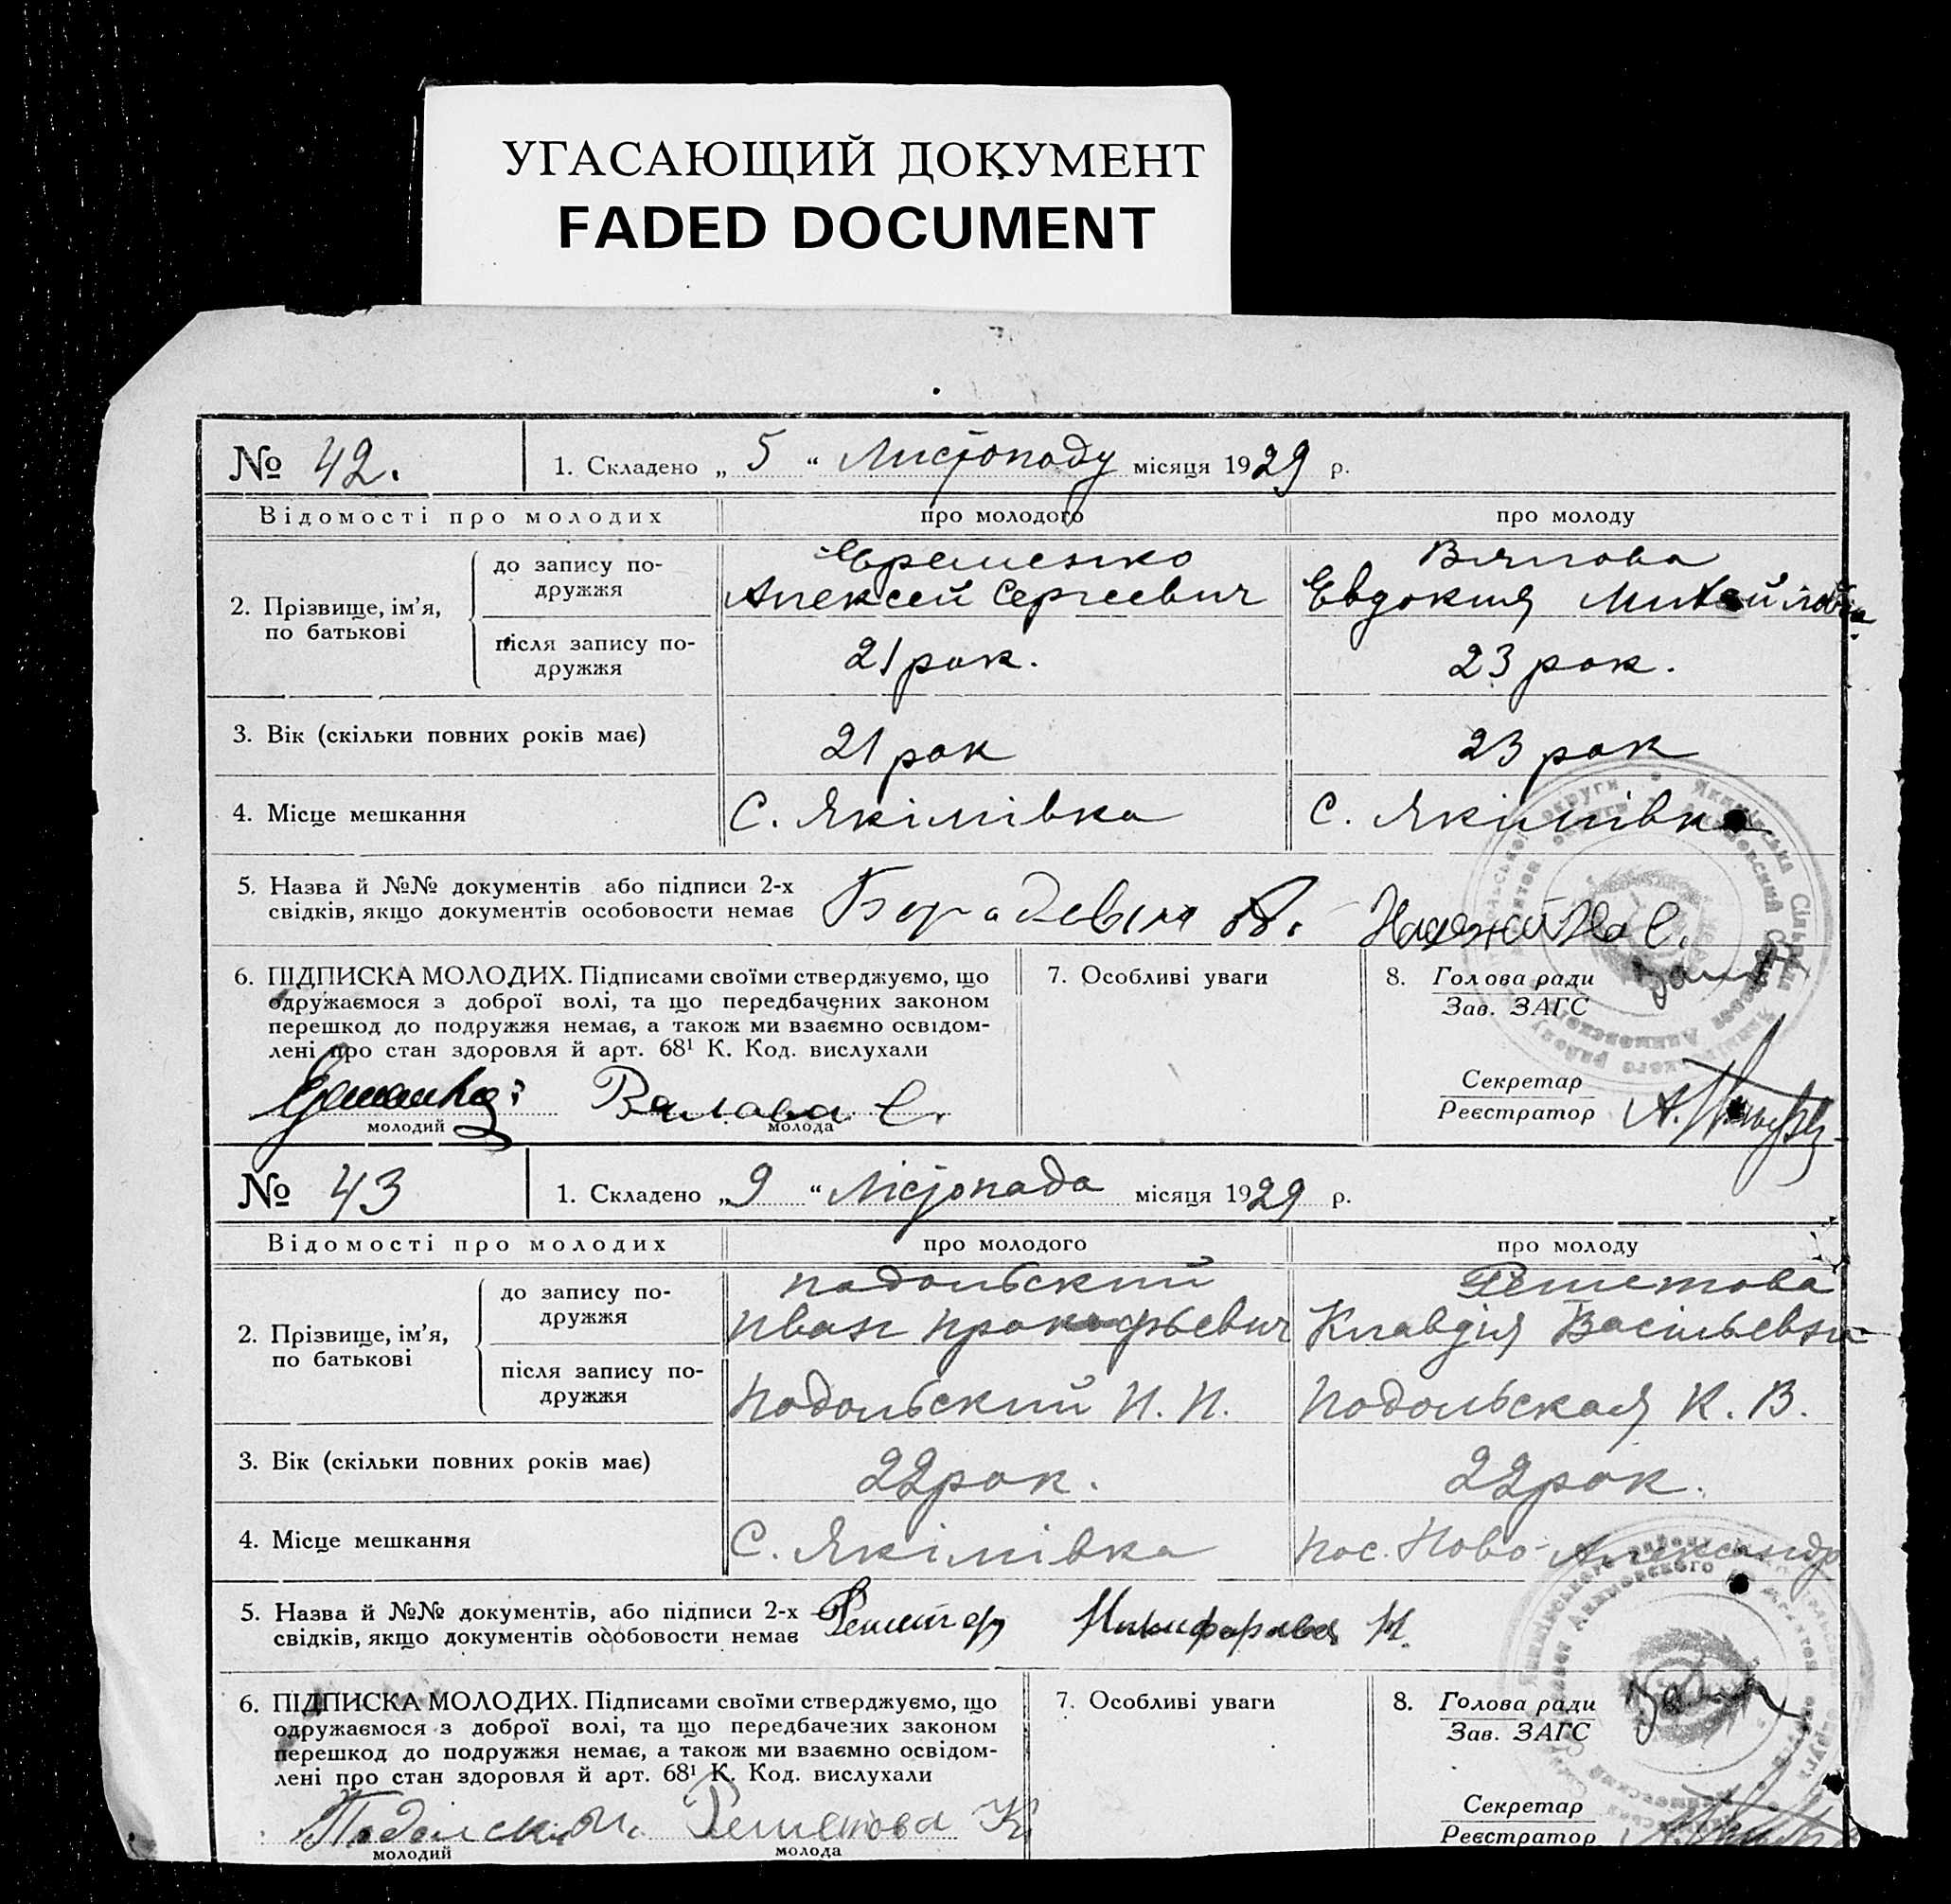 УГАСАЮЩИЙ ДОКУМЕНТ
FADED DOCUMENT
№ 42.
1. Складено „ 5 “ Листопаду місяця 1929 р.
Відомості про молодих
про молодого
про молоду
2. Прізвище, ім’я, по батькові
до запису подружжя
Єременко
Алексей Сергеевич
Вялова
Евдокия Михайловна
після запису подружжя
21 рок.
23 рок.
3. Вік (скільки повних років має)
21 рок
23 рок
4. Місце мешкання
С. Якімівка
С. Якимівка
5. Назва й №№ документів або підписи 2-х
свідків, якщо документів особовости немає
6. ПІДПИСКА МОЛОДИХ. Підписами своїми стверджуємо, що
одружаємося з доброї волі, та що передбачених законом
перешкод до подружжя немає, а також ми взаємно освідом-
лені про стан здоровля й арт. 68¹ К. Код. вислухали
Вялова Е.
молодий
молода
7. Особливі уваги
8. Голова ради
Зав. ЗАГС
Секретар
Реєстратор
№ 43
1. Складено „ 9 “ Лістопада місяця 1929 р.
Відомості про молодих
про молодого
про молоду
2. Прізвище, ім’я,
по батькові
до запису по-
дружжя
Подольский
Иван Прокофьевич
Решетова
Клавдия Васильевна
після запису по-
дружжя
Подольский И. П.
Подольская К. В.
3. Вік (скільки повних років має)
22 рок.
22 рок.
4. Місце мешкання
С. Якімівка
пос. Ново-Александр
5. Назва й №№ документів, або підписи 2-х
свідків, якщо документів особовости немає
Никифорова Н.
6. ПІДПИСКА МОЛОДИХ. Підписами своїми стверджуємо, що
одружаємося з доброї волі, та що передбачених законом
перешкод до подружжя немає, а також ми взаємно освідом-
лені про стан здоровля й арт. 68¹ К. Код. вислухали
Решетова К
молодий
молода
7. Особливі уваги
8. Голова ради
Зав. ЗАГС
Секретар
Реєстратор